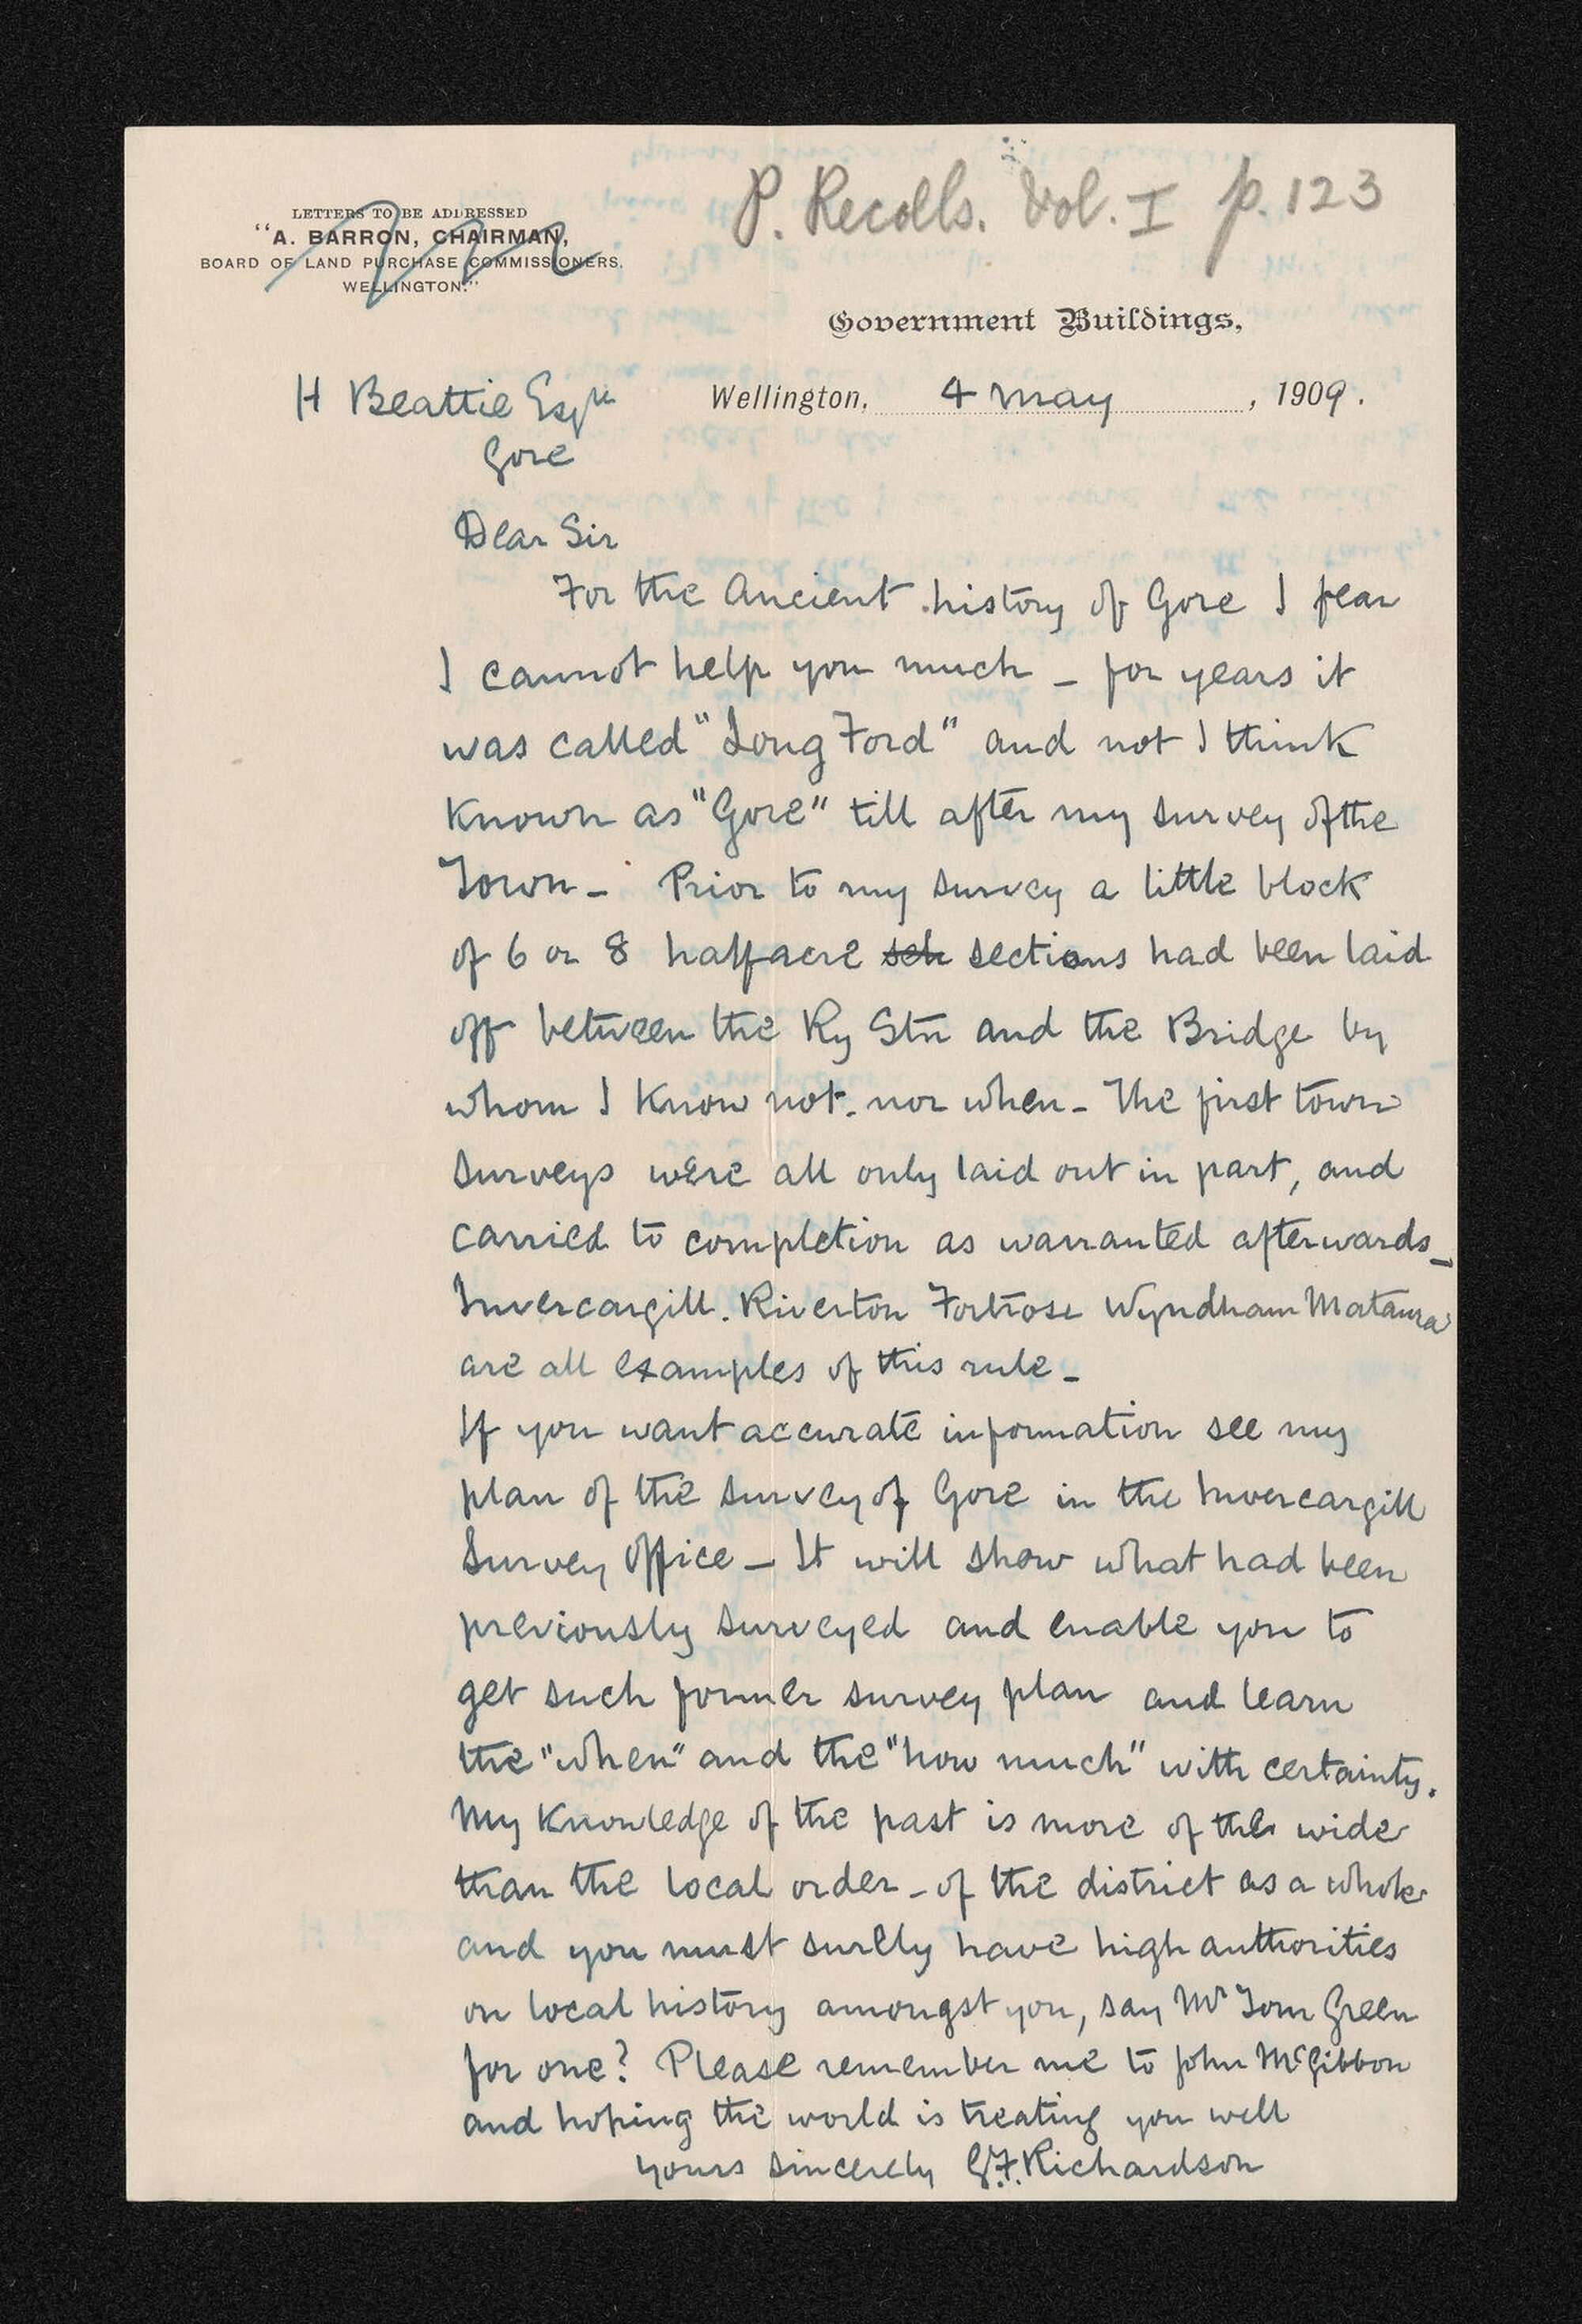 P. Recolls. Vol. I p. 123
LETTERS TO BE ADDRESSED
"A. BARRON, CHAIRMAN,
BOARD OF LAND PURCHASE COMMISSIONERS,
WELLINGTON."
Government Buildings,
Wellington, 4 May, 1909.
H Beattie Esqre
Gore
Dear Sir
For the Ancient history of Gore I fear
I cannot help you much – for years it
was called "Long Ford" and not I think
known as "Gore" till after my survey of the
Town – Prior to my survey a little block
of 6 or 8 half acre sections had been laid
off between the Ry Stn and the Bridge by
whom I know not. nor when – The first town
surveys were all only laid out in part, and
carried to completion as warranted afterwards –
Invercargill. Riverton Fortrose Wyndham Mataura
are all examples of this rule –
If you want accurate information see my
plan of the survey of Gore in the Invercargill
Survey Office – It will show what had been
previously surveyed and enable you to
get such former survey plan and learn
the "when" and the "how much" with certainty.
My knowledge of the past is more of the wide
than the local order – of the district as a whole
and you must surely have high authorities
on local history amongst you, say Mr Tom Green
for one? Please remember me to John McGibbon
and hoping the world is treating you well
yours sincerely G.F. Richardson